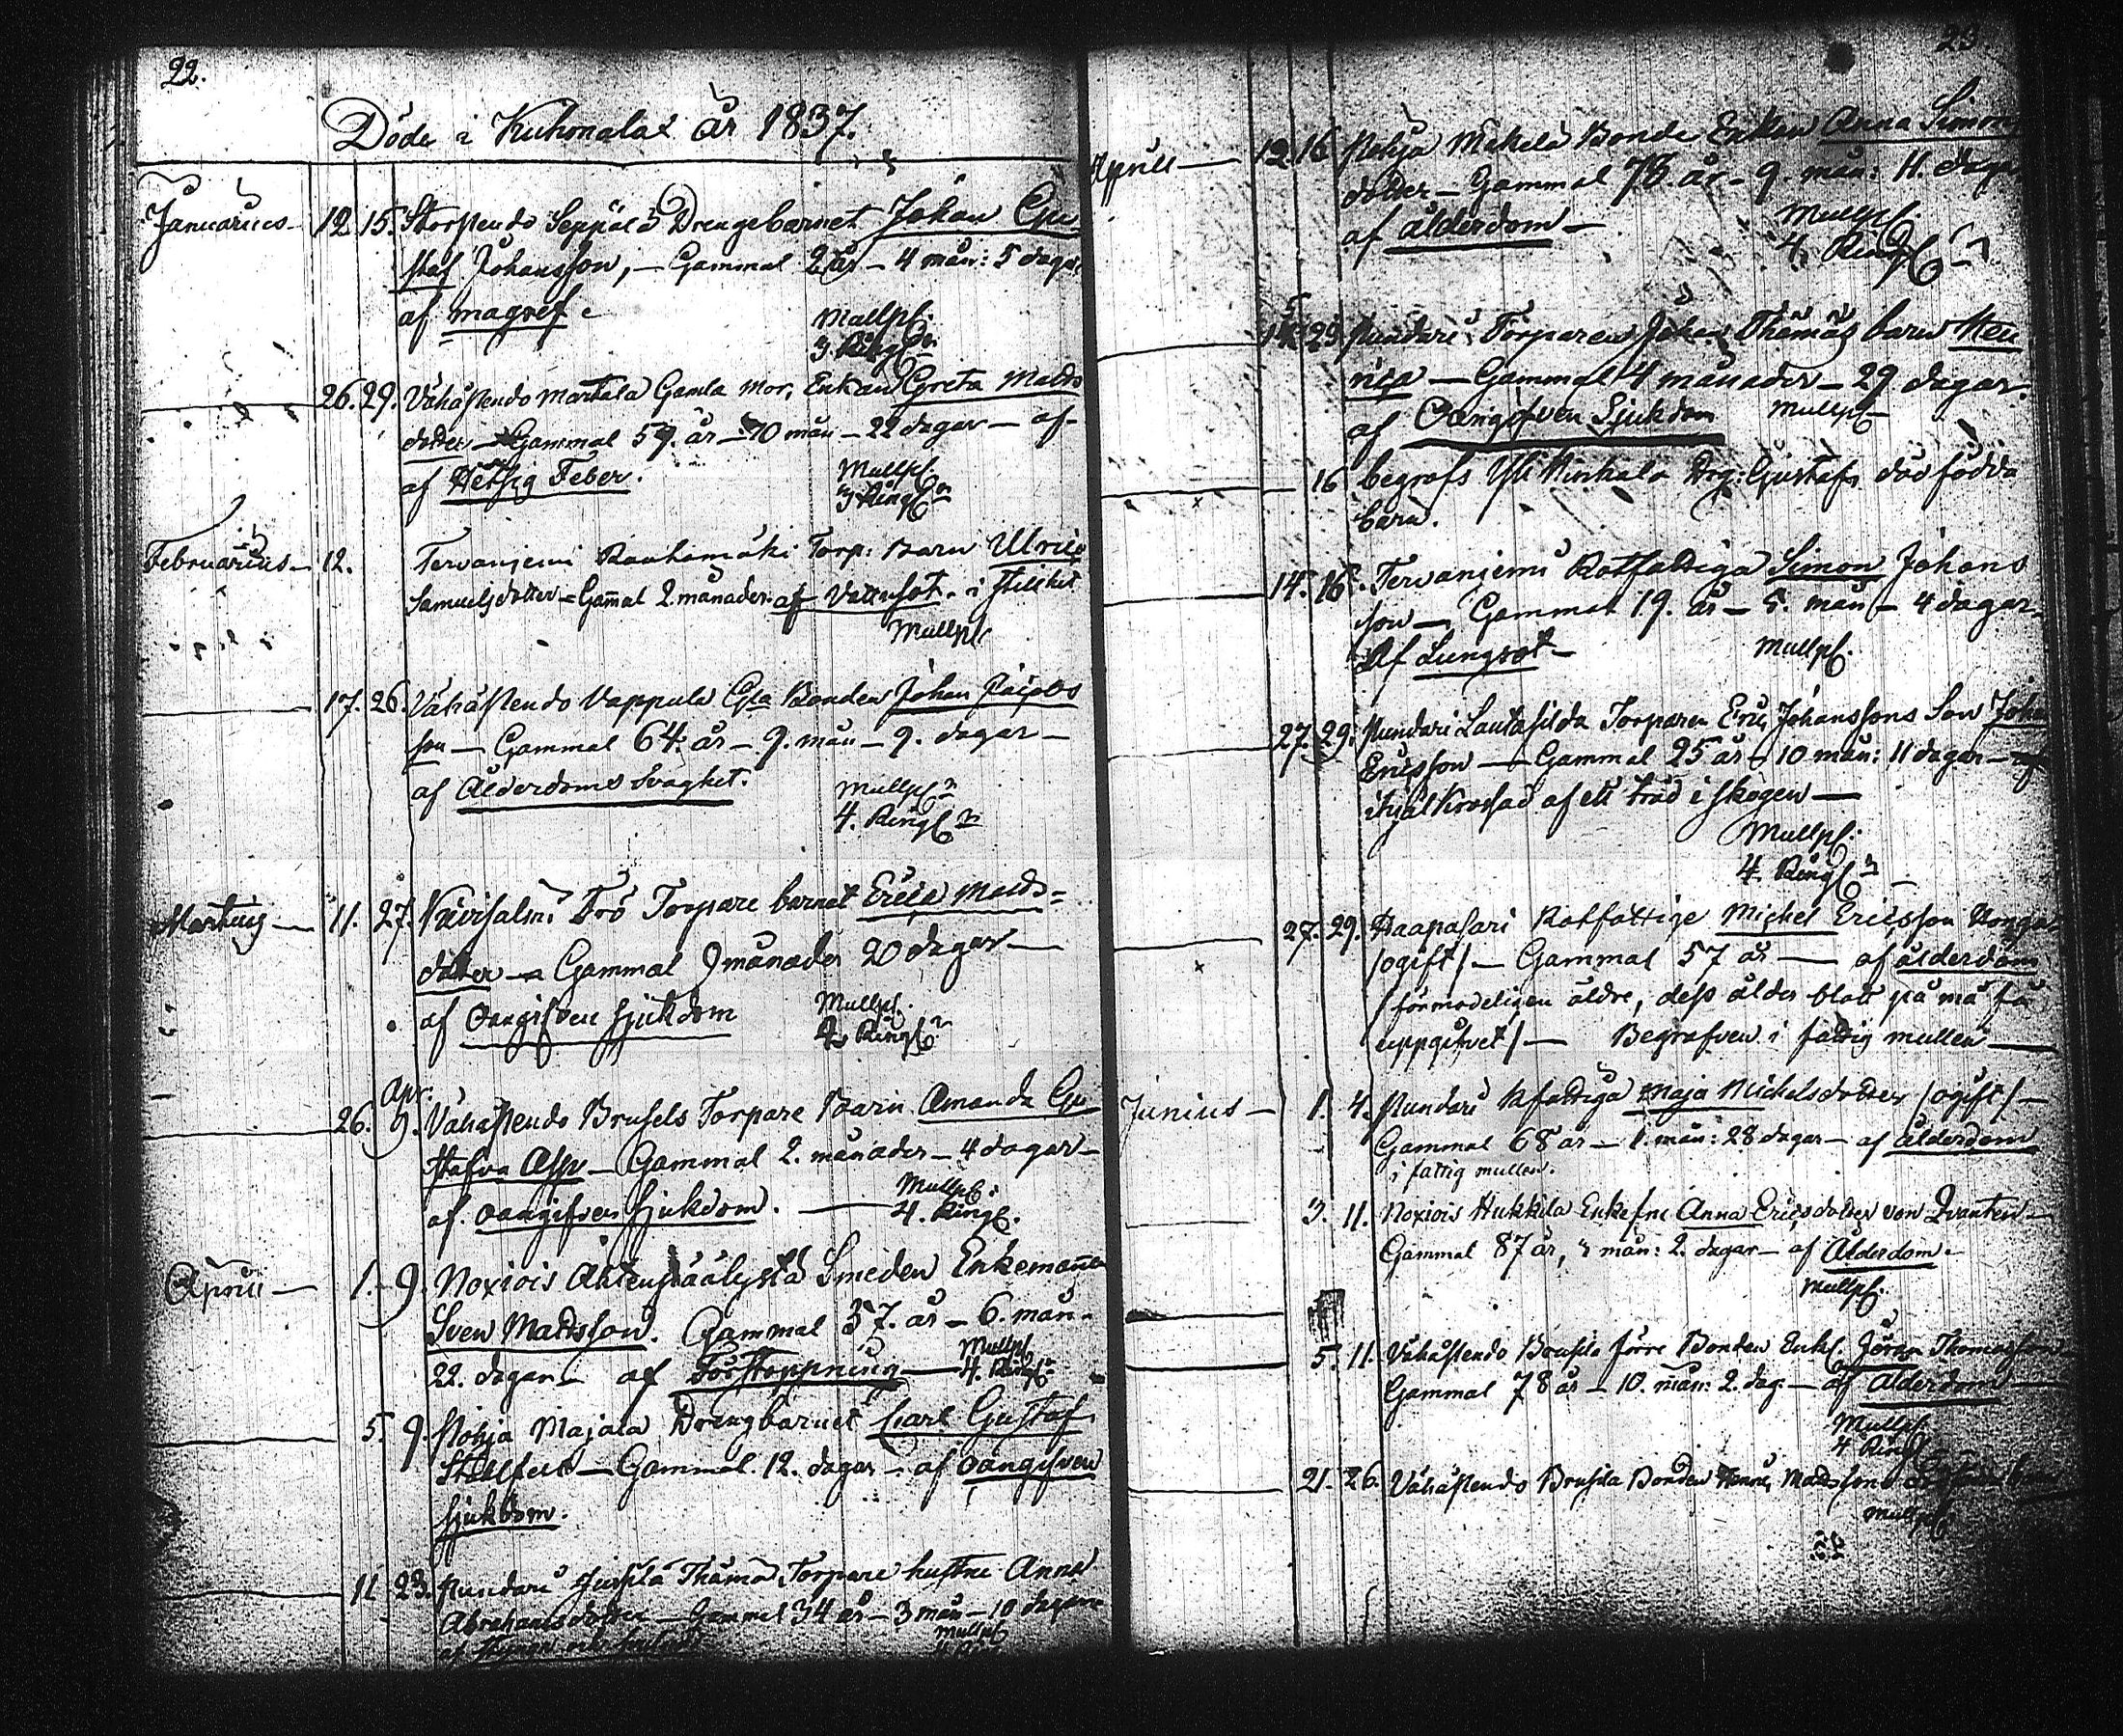 22.
Döde i Kuhmalat år 1837.
Januarius 12 15. Storpendo Seppälä Drengebarnet Johan Gu
staf Johansson, — Gammal 2 år — 4 mån: 5 dagar
af magref
Mullpl.
3 Ringl:n
26. 29. Vähäpendo Martala Gamla Mor, Enkan Greta Matts
dotter — Gammal 59. år — 10 mån — 22 dagar — af
af Hetsig Feber.
Mullpl.
3 Ringl:n
Februarius 12. Tervaniemi Rauhamäki Torp: Barn Ulrica
Samuelsdotter — Gamal 2 månader af Vattusot. i stillhet
Mullpl
17. 26. Vähäpendo Vappula Gla Bonden Johan Jacobs
son — Gammal 64. år — 9. mån — 9. dagar —
af Ålderdoms Svaghet.
Mullpl:n
4. Ringl:n
Martius 11. 27. Torpare barnet Erica Matts=
dotter — Gammal 9 månader 20 dagar —
af Oangifven sjukdom
Mullpl.
4. Ringl:n
Apr:
26. 9. Vähäpendo Brusels Torpare Barn Amanda Gu
stafva Asp — Gammal 2. månader — 4 dagar —
af oangifven sjukdom. —
Mullpl.
4. Ringl.
April — 1. 9. Noxiois Smeden Enkemannen
Sven Mattsson. Gammal 37. år — 6. mån
22. dagar — af Förstoppning —
Mullpl
4. Ringl:
5. 9. Nohja Majala Drengbarnet Carl Gustaf
— Gammal 12. dagar — af oangifven
sjukdom.
11 23. Pundari Jussila Thåmå Torpare hustru Anna
Abrahamsdotter — Gammal 34 år — 3 mån — 10 dagar
af
Mullpl
23.
April — 12 16 Nohja Mikelä Bonde Enkan Anna Simons
dotter — Gammal 78. år — 9. mån: 11. dagar
af ålderdom —
Mullpl.
4. Ringl
29 Pundari Torparen Johan Thomas barn Hen
rica — Gammal 4 månader — 29 dagar
af Oangifven Sjukdom
Mullpl
16 begrofs Yli Drg: Gustafs död födda
barn.
14. 16. Tervaniemi Rotfattiga Simon Johans
son — Gammal 19. år — 5. mån — 4 dagar
Af Lungsot —
Mullpl.
27. 29. Pundari Lautasilda Torparen Eric Johanssons Son Joha
Ericsson — Gammal 25 år — 10 mån: 11 dagar — af
ihjälkrossad af ett träd i skogen —
Mullpl:
4. Ringl:n
27. 29. Haapasari Rotfattige Michel Ericsson
/ogift/ — Gammal 57 år — af ålderdom
/förmodeligen äldre, dess ålder blott på må få
uppgifvet/ — Begrafven i fattig mullen —
Junius — 1. 4. Pundari Rfattiga Maja Michelsdotter /ogift/ —
Gammal 68 år — 1. mån: 28 dagar — af ålderdom
i fattig mullen.
3. 11. Noxiois Hukkila Enkefru Anna Ericsdotter von Qvanten —
Gammal 87 år, 4 mån: 2. dagar — af Ålderdom. —
Mullpl.
5. 11. Vähäpendo Brusila förre Bonden Enkl. Jöran Thomasson —
Gammal 78 år — 10. mån: 2. dag. — af Ålderdom —
Mullpl
4 Ringl
21. 26. Vähäpendo Brusila Bonden Henric Mattssons
Mullpl